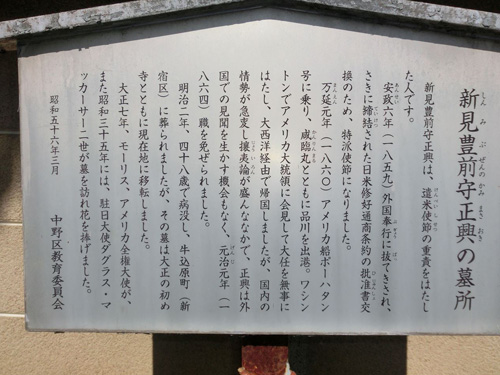 新見豊前守正興の墓所
しんみぶぜんのかみまさおき
新見豊前守正興は、遣米使節の重責をはたし
た人です。
安政六年(一八五九)外国奉行に抜てきされ、
さきに締結された日米修好通商条約の批准書交
換のため、特派使節になりました。
万延元年(一八六〇)アメリカ船ポーハタン
号に乗り、咸臨丸とともに品川を出港。ワシン
トンでアメリカ大統領に会見して大任を無事に
はたし、大西洋経由で帰国しましたが、国内の
情勢が急変し攘夷論が盛んななかで、正興は外
国での見聞を生かす機会もなく、元治元年(一
八六四)職を免ぜられました。
明治二年、四十八歳で病没し、牛込原町(新
宿区)に葬られましたが、その墓は大正の初め
寺とともに現在地に移転しました。
大正七年、モーリス、アメリカ全権大使が、
また昭和三十五年には、駐日大使ダグラス・マ
ッカーサー二世が墓を訪れ花を捧げました。
昭和五十六年三月
中野区教育委員会